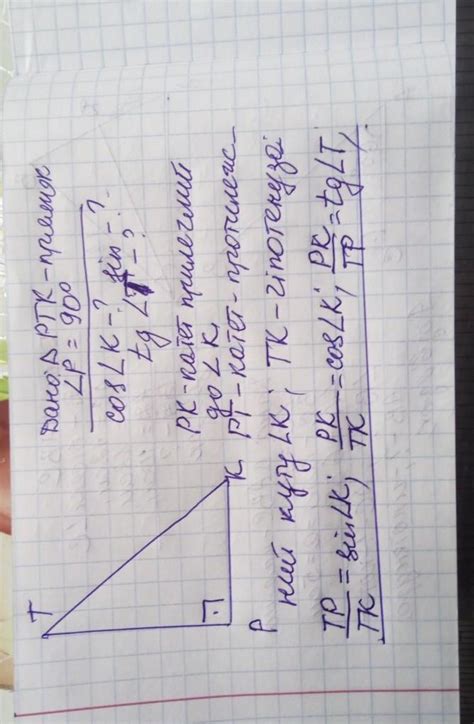 Дано: △ PTK - прямок
∠P = 90°
cos∠K - ? sin - ?
tg ∠T - ?
PK - катет прилеглий
до ∠K,
PT - катет - протилеж_
ний куту ∠K; TK - гіпотенуза
T
P
K
TP/TK = sin∠K; PK/TK = cos∠K; PK/TP = tg∠T,